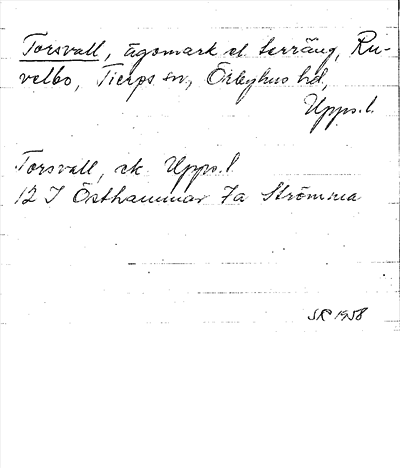 Torsvall, ägomark el. terräng, Ru-
velbo, Tierps sn, Örbyhus hd,
Upps.l.
Torsvall, ek. Upps.l
12 I Östhammar 7a Strömma
SR 1958